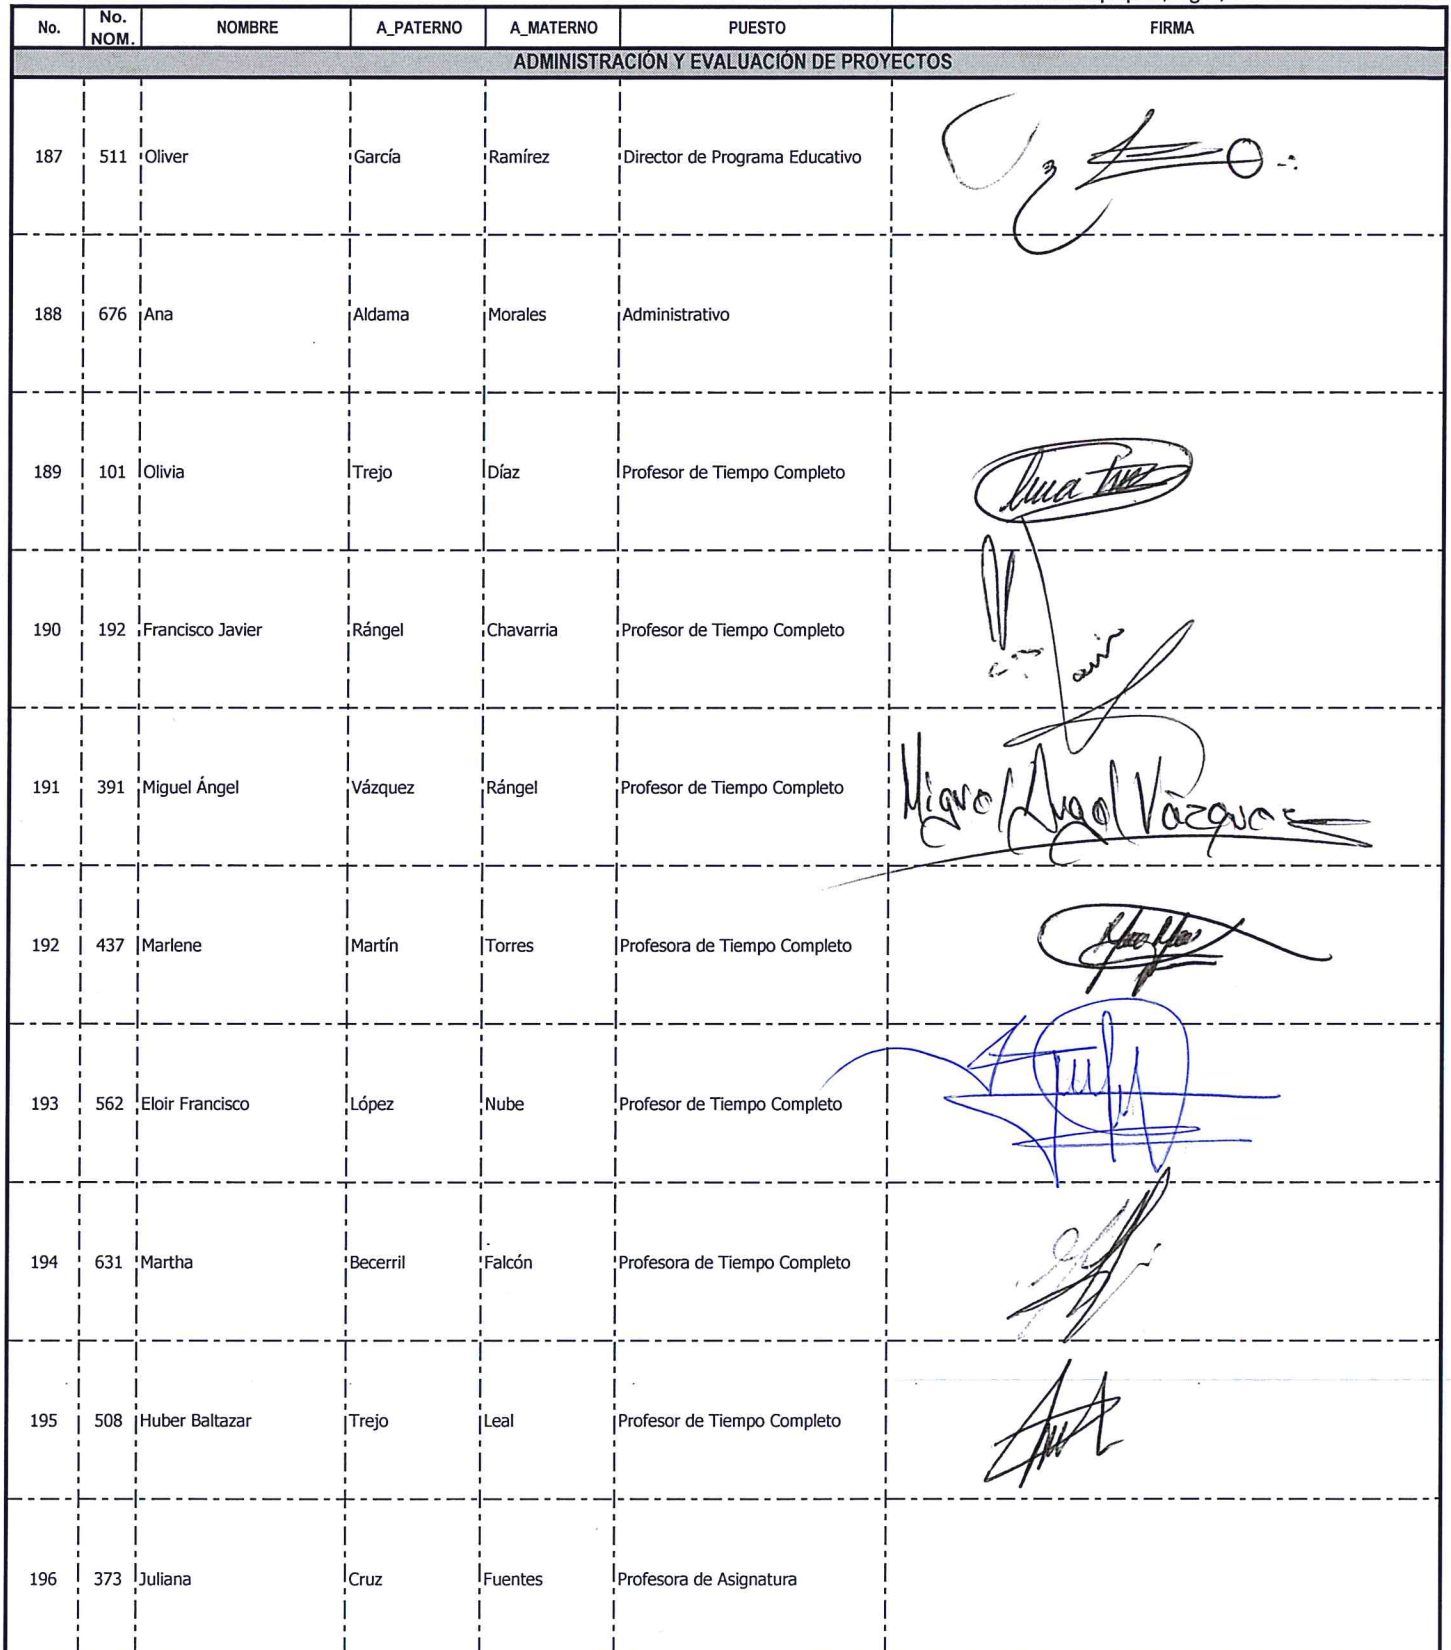 No. No. NOM. NOMBRE A_PATERNO A_MATERNO PUESTO FIRMA
ADMINISTRACIÓN Y EVALUACIÓN DE PROYECTOS
187 511 Oliver García Ramírez Director de Programa Educativo
188 676 Ana Aldama Morales Administrativo
189 101 Olivia Trejo Díaz Profesor de Tiempo Completo
190 192 Francisco Javier Rángel Chavarria Profesor de Tiempo Completo
191 391 Miguel Ángel Vázquez Rángel Profesor de Tiempo Completo Miguel Angel Vázquez
192 437 Marlene Martín Torres Profesora de Tiempo Completo
193 562 Eloir Francisco López Nube Profesor de Tiempo Completo
194 631 Martha Becerril Falcón Profesora de Tiempo Completo
195 508 Huber Baltazar Trejo Leal Profesor de Tiempo Completo
196 373 Juliana Cruz Fuentes Profesora de Asignatura